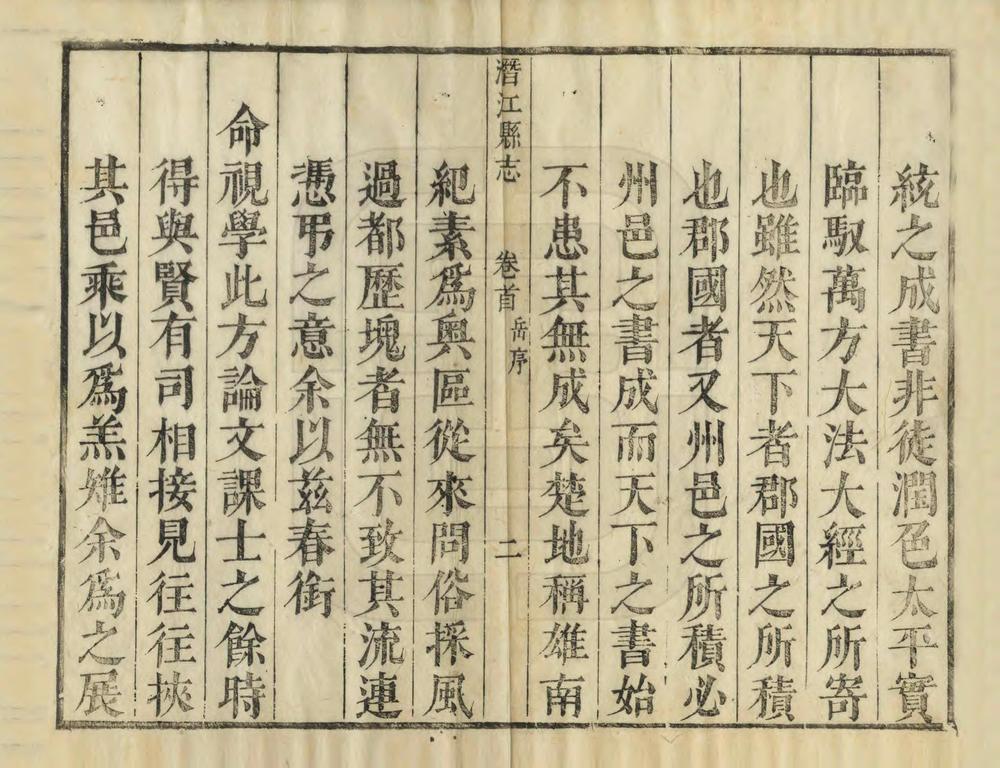 統之成書非徒潤色太平實
臨馭萬方大法大經之所寄
也雖然天下者郡國之所積
也郡國者又州邑之所積必
州邑之書成而天下之書始
不患其無成矣楚地稱雄南
潛江縣志 卷首 岳序 二
紀素爲輿區從來問俗採風
過都歷塊者無不致其流連
憑弔之意余以茲春銜
命視學此方論文課士之餘時
得與賢有司相接見往往挾
其邑乘以爲羔雉余爲之展